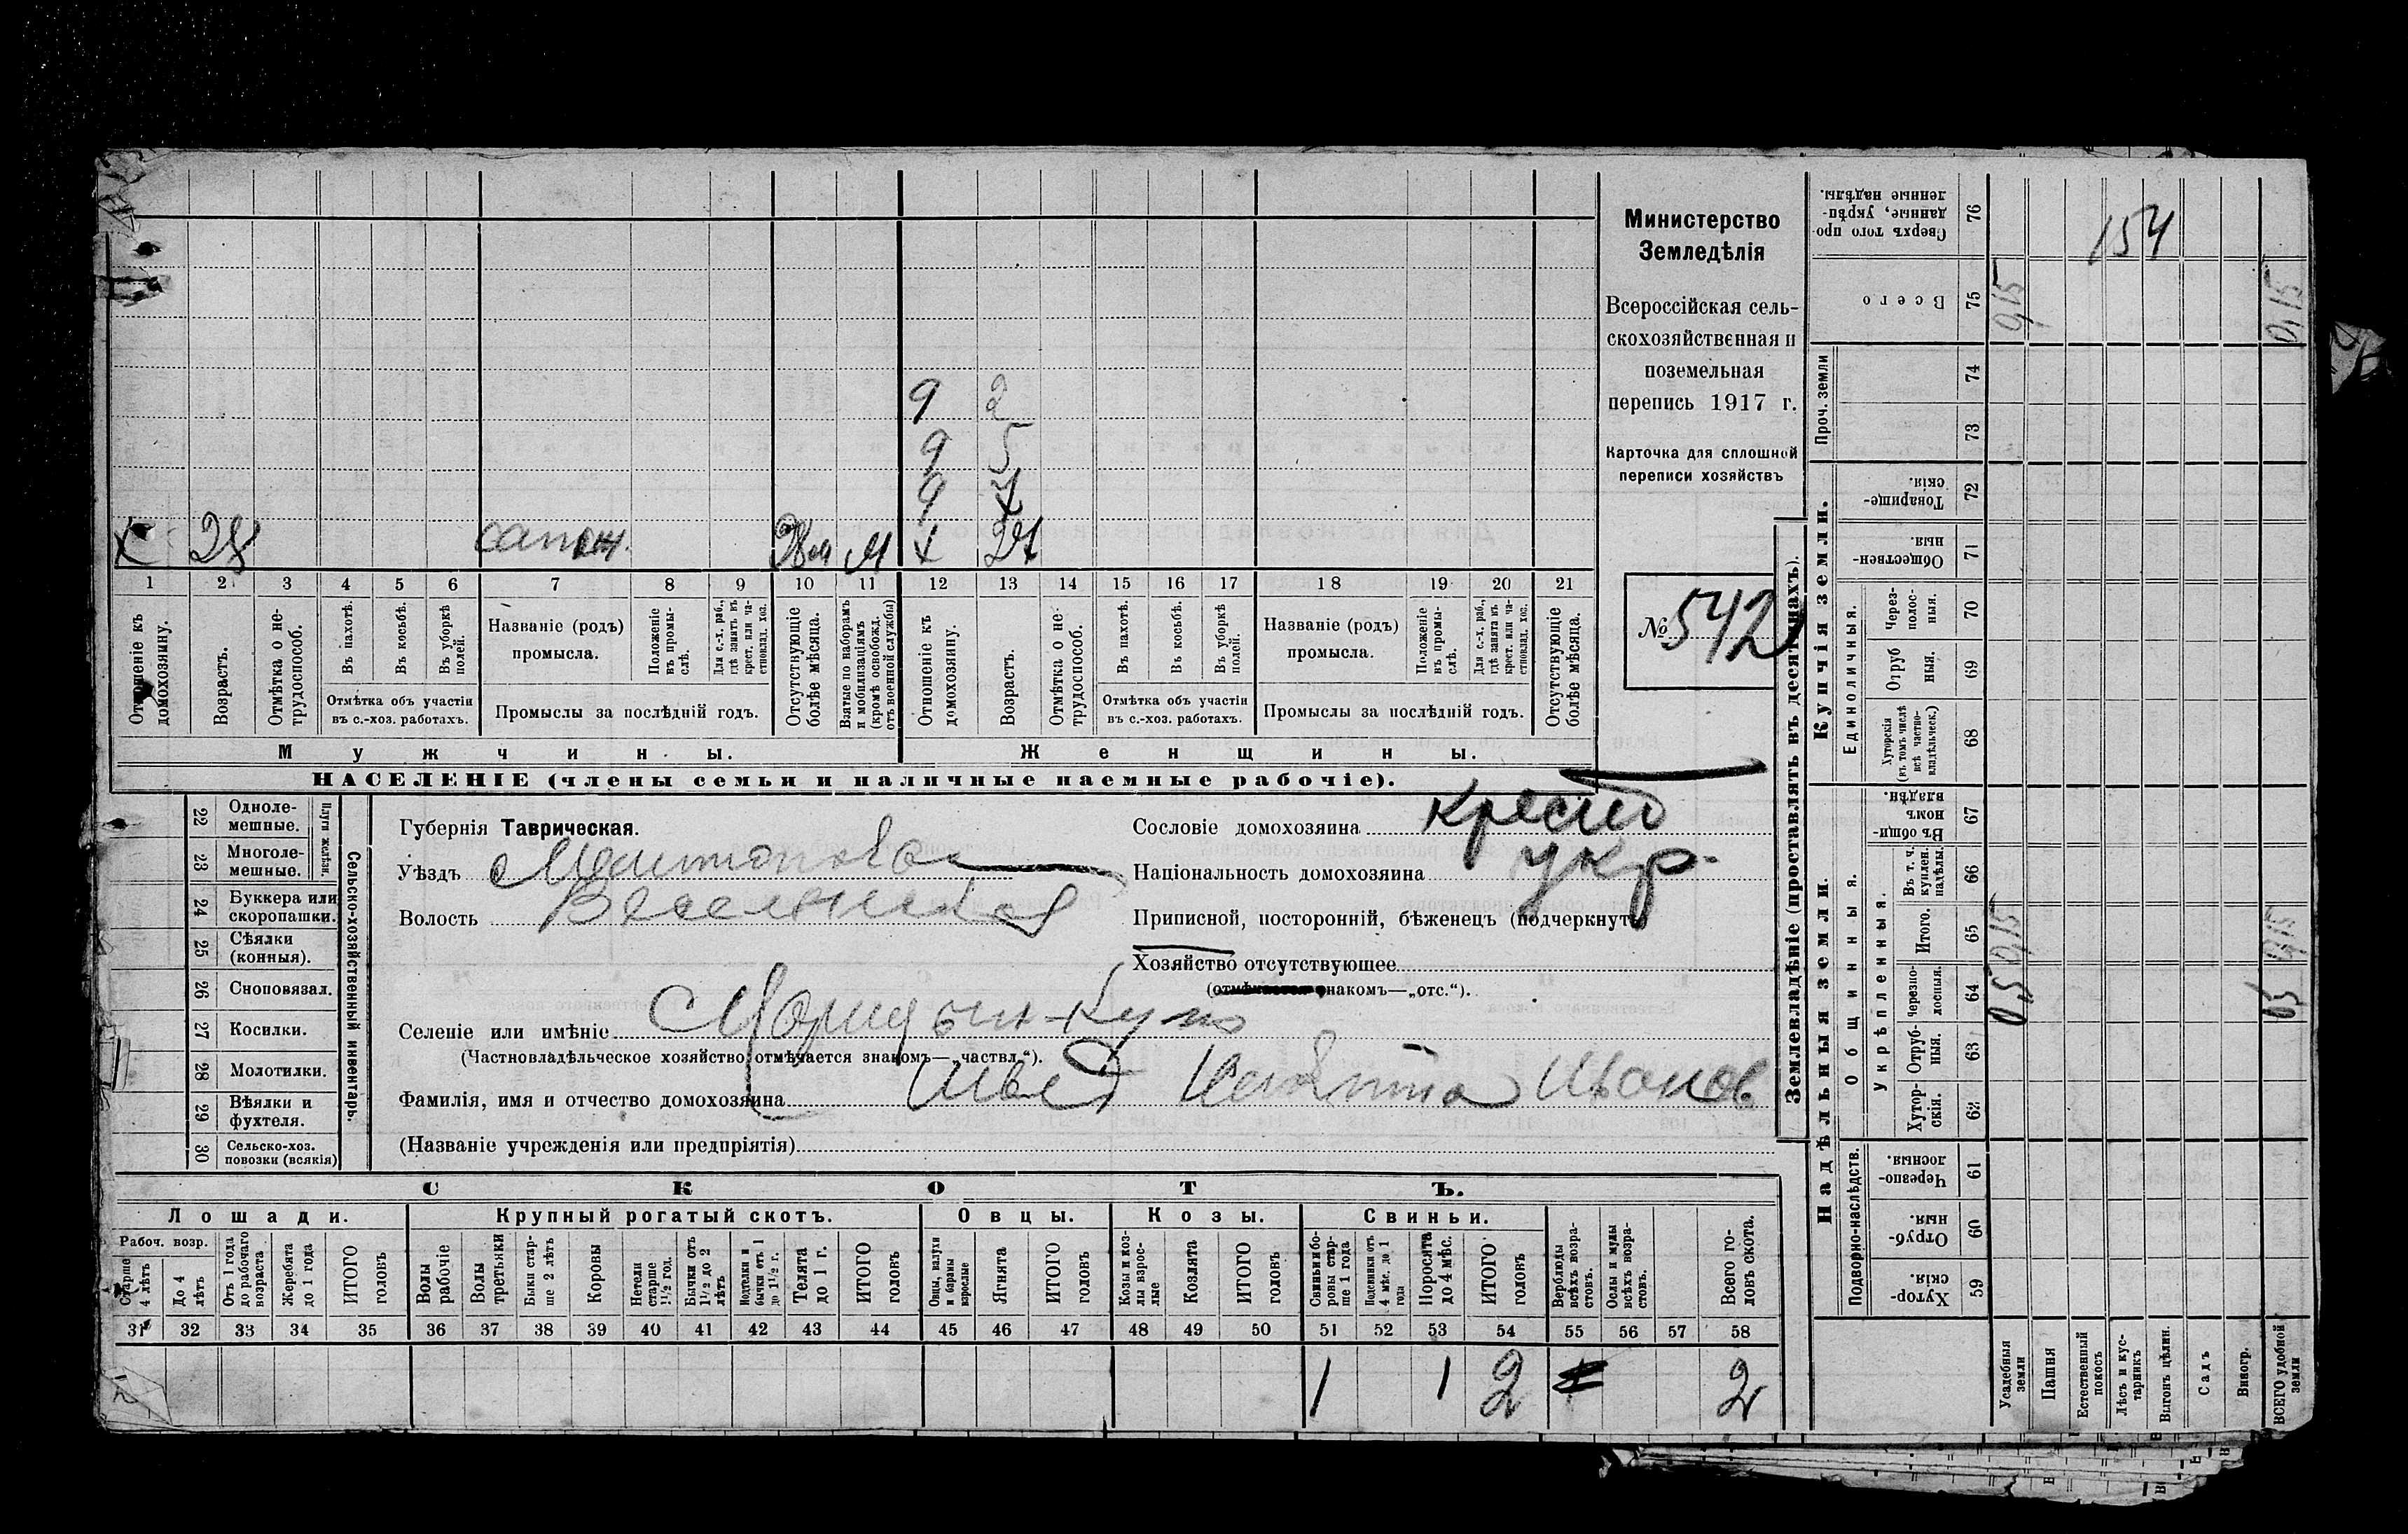 9 2
9 5
9
х 28 сапож. М х 24
1 2 3 4 5 6 7 8 9 10 11 12 13 14 15 16 17 18 19 20 21
Отношеніе къ домохозяину.
Возрастъ.
Отмѣтка о не-трудоспособ.
Въ пахотѣ.
Въ косьбѣ.
Въ уборкѣ полей.
Отмѣтка объ участіи
въ с.-хоз. работахъ.
Названіе (родъ)
промысла.
Положеніе въ промы-слѣ.
Для с.-х. раб., гдѣ занятъ въ крест. или ча-стновлад. хоз.
Промыслы за послѣдній годъ.
Отсутствующіе болѣе мѣсяца.
Взятые по наборамъ и мобилизаціямъ (кромѣ освобожд. отъ военной службы)
Отношеніе къ домохозяину.
Возрастъ.
Отмѣтка о не-трудоспособ.
Въ пахотѣ.
Въ косьбѣ.
Въ уборкѣ полей.
Отмѣтка объ участіи
въ с.-хоз. работахъ.
Названіе (родъ)
промысла.
Положеніе въ промы-слѣ.
Для с.-х. раб., гдѣ занята въ крест. или ча-стновлад. хос.
Промыслы за послѣдній годъ.
Отсутствующіе болѣе мѣсяца.
Мужчины.
Женщины.
НАСЕЛЕНІЕ (члены семьи и наличные наемные рабочіе).
Министерство
Земледѣлія
Всероссійская сель-
скохозяйственная и
поземельная
перепись 1917 г.
Карточка для сплошной
переписи хозяйствъ
№ 542
22 Одноле-мешные.
23 Многоле-мешные.
Плуги желѣз.
24 Буккера или скоропашки.
25 Сѣялки (конныя).
26 Сноповязал.
27 Косилки.
28 Молотилки.
29 Вѣялки и фухтеля.
30 Сельско-хоз. повозки (всякія)
Сельско-хозяйственный инвентарь.
Губернія Таврическая.
Уѣздъ
Волость Веселовская
Селеніе или имѣніе
(Частновладѣльческое хозяйство отмѣчается знакомъ—„частвл.“).
Фамилія, имя и отчество домохозяина Швед Никита Иванов
(Названіе учрежденія или предпріятія)
Сословіе домохозяина крест
Національность домохозяина укр.
Приписной, посторонній, бѣженец (подчеркнуть)
Хозяйство отсутствующее
(отмѣчается знакомъ—„отс.“).
СКОТЪ.
Лошади. Крупный рогатый скотъ. Овцы. Козы. Свиньи.
Рабоч. возр.
Старше 4 лѣтъ
До 4 лѣтъ
Отъ 1 года до рабочаго возраста
Жеребята до 1 года
ИТОГО головъ
Волы рабочіе
Волы третьяки
Быки стар-ше 2 лѣтъ
Коровы
Нетели старше 1½ год.
Бычки отъ 1½ до 2 лѣтъ
Подтелки и бычки отъ 1 до 1½ г.
Телята до 1 г.
ИТОГО головъ
Овцы, валухи и бараны взрослые
Ягнята
ИТОГО головъ
Козы и коз-лы взрос-лые
Козлята
ИТОГО головъ
Свиньи и бо-ровы стар-ше 1 года
Подсвинки отъ 4 мѣс. до 1 года
Поросята до 4 мѣс.
ИТОГО головъ
Верблюды всѣхъ возра-стовъ.
Ослы и мулы всѣхъ возра-стовъ.
Всего го-ловъ скота.
31 32 33 34 35 36 37 38 39 40 41 42 43 44 45 46 47 48 49 50 51 52 53 54 55 56 57 58
1 1 2 2
Землевладѣніе (проставлять въ десятинахъ).
Надѣльныя земли. Купчія земли. Проч. земли
Подворно-наслѣдств.
Общинныя.
Укрѣпленныя.
Единоличныя.
Хутор-скія. 59
Отруб-ныя. 60
Черезпо-лосныя. 61
Хутор-скія. 62
Отруб-ныя. 63
Черезпо-лосныя. 64
Итого. 65
Въ т. ч. куплен. надѣлы. 66
Въ общин-номъ владѣн. 67
Хуторскія (въ томъ числѣ всѣ частно-владѣльческ.) 68
Отруб ныя. 69
Через-полос-ныя. 70
Обществен-ныя. 71
Товарище-скія. 72
73
74
Всего 75
Сверхъ того про-данные, укрѣп-ленные надѣлы. 76
Усадебныя земли
Пашня
Естественный покосъ
Лѣсъ и кус-тарникъ
Выгонъ цѣлин.
Садъ
Виногр.
ВСЕГО удобной земли
0,15
0,15
154